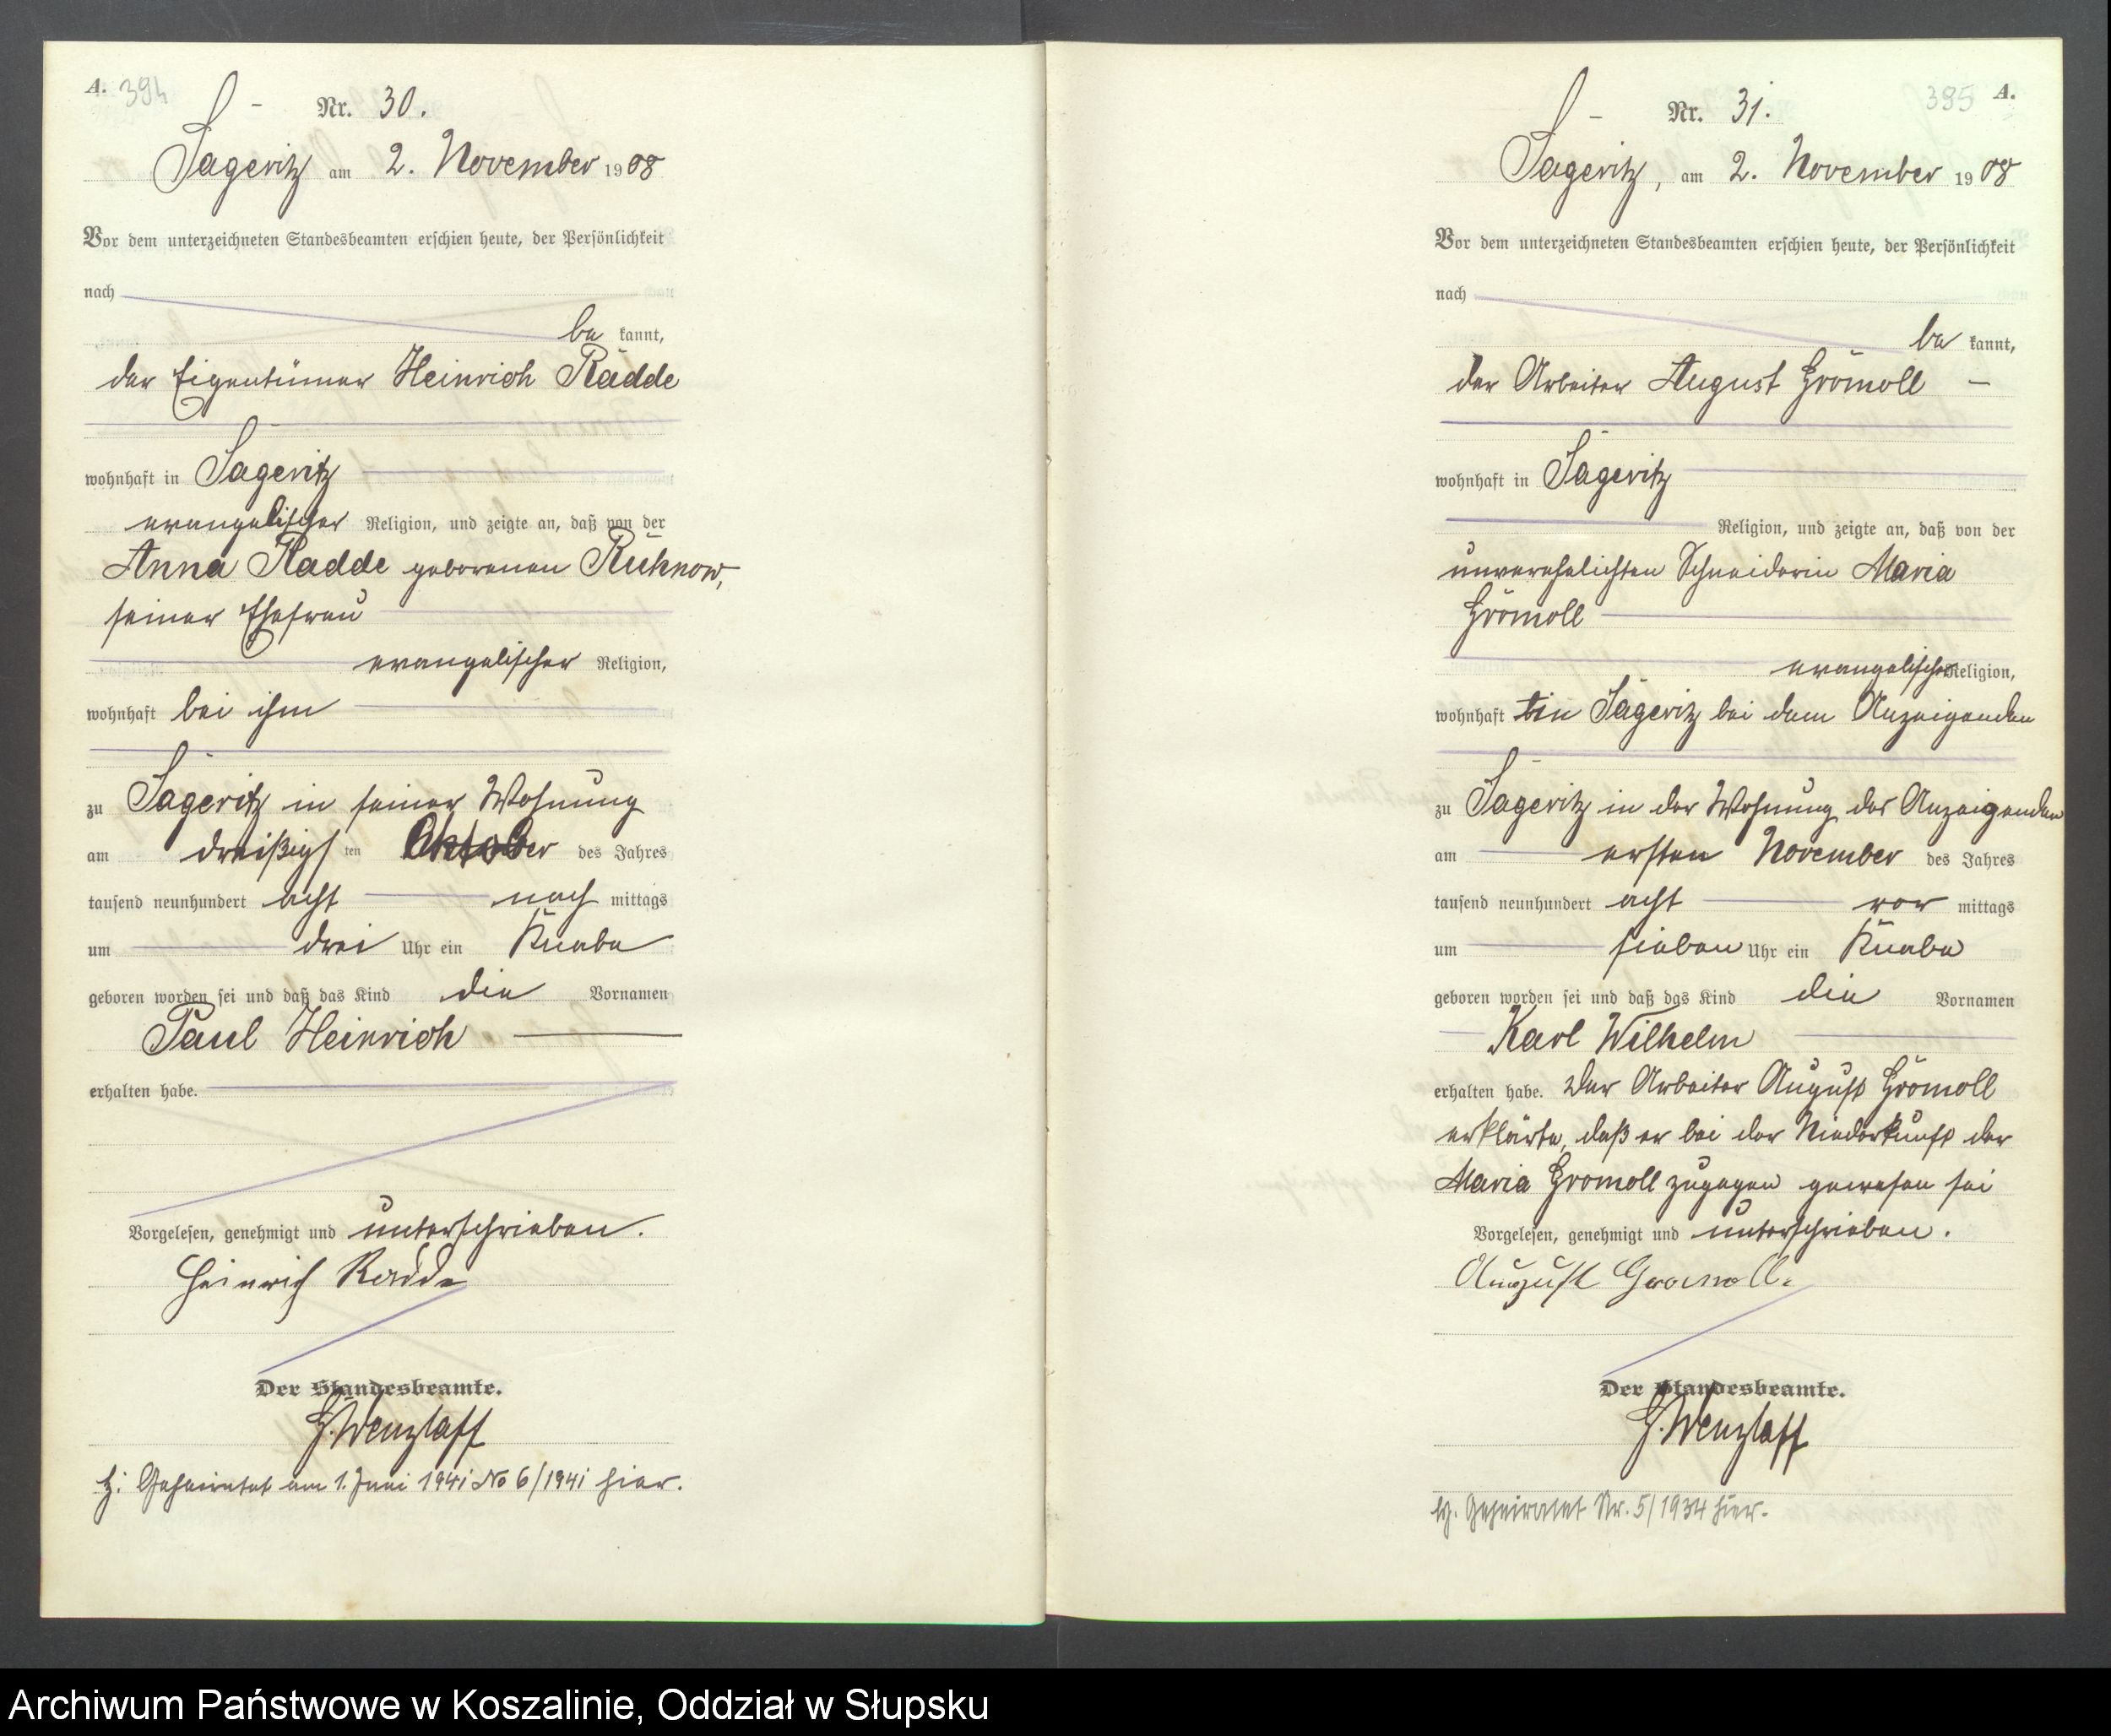 A. 394
Nr. 30.
Sageritz am 2. November 1908
Vor dem unterzeichneten Standesbeamten erschien heute, der Persönlichkeit
nach
be kannt,
der Eigentümer Heinrich Radde
wohnhaft in Sageritz
evangelischer Religion, und zeigte an, daß von der
Anna Radde geborenen Ruhnow,
seiner Ehefrau
evangelischer Religion,
wohnhaft bei ihm
zu Sageritz in seiner Wohnung
am dreißigsten Oktober des Jahres
tausend neunhundert acht nach mittags
um drei Uhr ein Knabe
geboren worden sei und daß das Kind die Vornamen
Paul Heinrich
erhalten habe.
Vorgelesen, genehmigt und unterschrieben.
Heinrich Radde
Der Standesbeamte.
H. Wenzlaff
H: Geheiratet am 1. Juni 1941 No 6/1941 hier.
395 A.
Nr. 31.
Sageritz, am 2. November 1908
Vor dem unterzeichneten Standesbeamten erschien heute, der Persönlichkeit
nach
be kannt,
der Arbeiter August Gromoll
wohnhaft in Sageritz
Religion, und zeigte an, daß von der
unverehelichten Schneiderin Maria
Gromoll
evangelischer Religion,
wohnhaft in Sageritz bei dem Anzeigenden
zu Sageritz in der Wohnung des Anzeigenden
am ersten November des Jahres
tausend neunhundert acht vor mittags
um sieben Uhr ein Knabe
geboren worden sei und daß das Kind die Vornamen
Karl Wilhelm
erhalten habe. Der Arbeiter August Gromoll
erklärte, daß er bei der Niederkunft der
Maria Gromoll zugegen gewesen sei
Vorgelesen, genehmigt und unterschrieben.
August Gromoll.
Der Standesbeamte.
H. Wenzlaff
Geheiratet Nr. 5/1934 hier.
Archiwum Państwowe w Koszalinie, Oddział w Słupsku